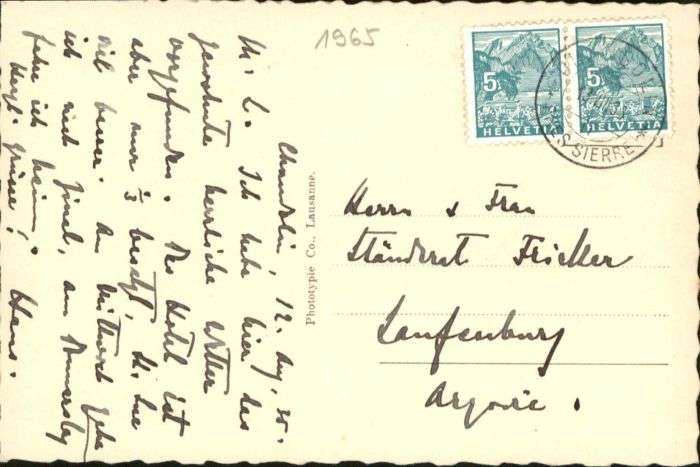 1965
5
HELVETIA
5
HELVETIA
SIERRE
Chandolin, 12. Aug. 35.
M. L. Ich habe hier das
gewohnte herrliche Wetter
vorgefunden. Das Hotel ist
aber nur 1/3 besetzt, St. Luc
viel besser. Am Mittwoch gehe
ich nach Zinal, am Donnerstag
fahre ich heim.
Herzl. Grüsse! Hans.
Phototypie Co., Lausanne.
Herrn & Frau
Ständerat Fricker
Laufenburg
Argovie.